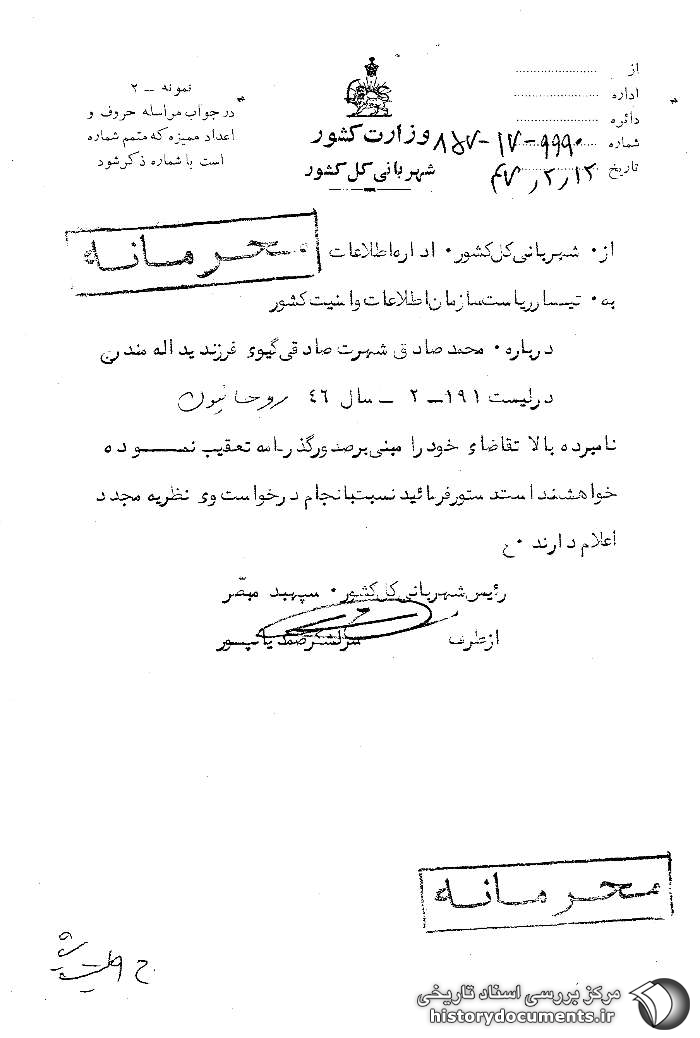 نمونه – ۲
در جواب مراسله حروف و
اعداد ممیزه که متمم شماره
است با شماره ذکر شود
وزارت کشور
شهربانی کل کشور
از
اداره
دائره
شماره ۹۹۹۰-۱۷-۸۵۷
تاریخ ۴۷٫۲٫۱۲
محرمانه
از۰ شهربانی کل کشور۰ اداره اطلاعات
به۰ تیمسار ریاست سازمان اطلاعات و امنیت کشور
درباره۰ محمد صادق شهرت صادقی گیوی فرزند یداله مندرج
در لیست ۱۹۱–۲ – سال ۴۶ روحانیون
نامبرده بالا تقاضای خود را مبنی بر صدور گذرنامه تعقیب نموده
خواهشمند است دستور فرمائید نسبت بانجام درخواست وی نظریه مجدد
اعلام دارند ۰ ح
رئیس شهربانی کل کشور۰ سپهبد مبصّر
از طرف سرلشکر صمدیانپور
محرمانه
مرکز بررسی اسناد تاریخی
historydocuments.ir